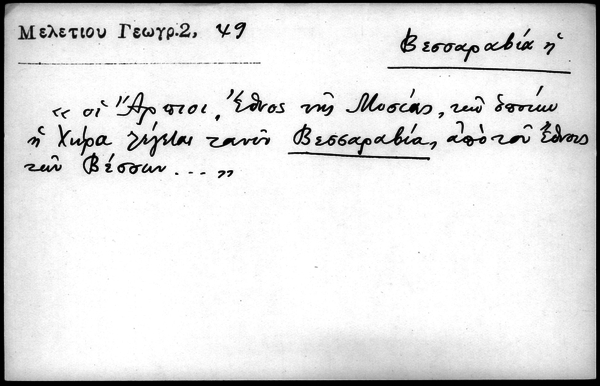 Μελετίου Γεωγρ.2, 49
Βεσσαραβία ἡ
« οἱ Ἄρπιοι, Ἔθνος τῆς Μυσίας, τῶν ὁποίων
ἡ Χώρα λέγεται τανῦν Βεσσαραβία, ἀπὸ τοῦ Ἔθνους
τῶν Βέσσων ... »